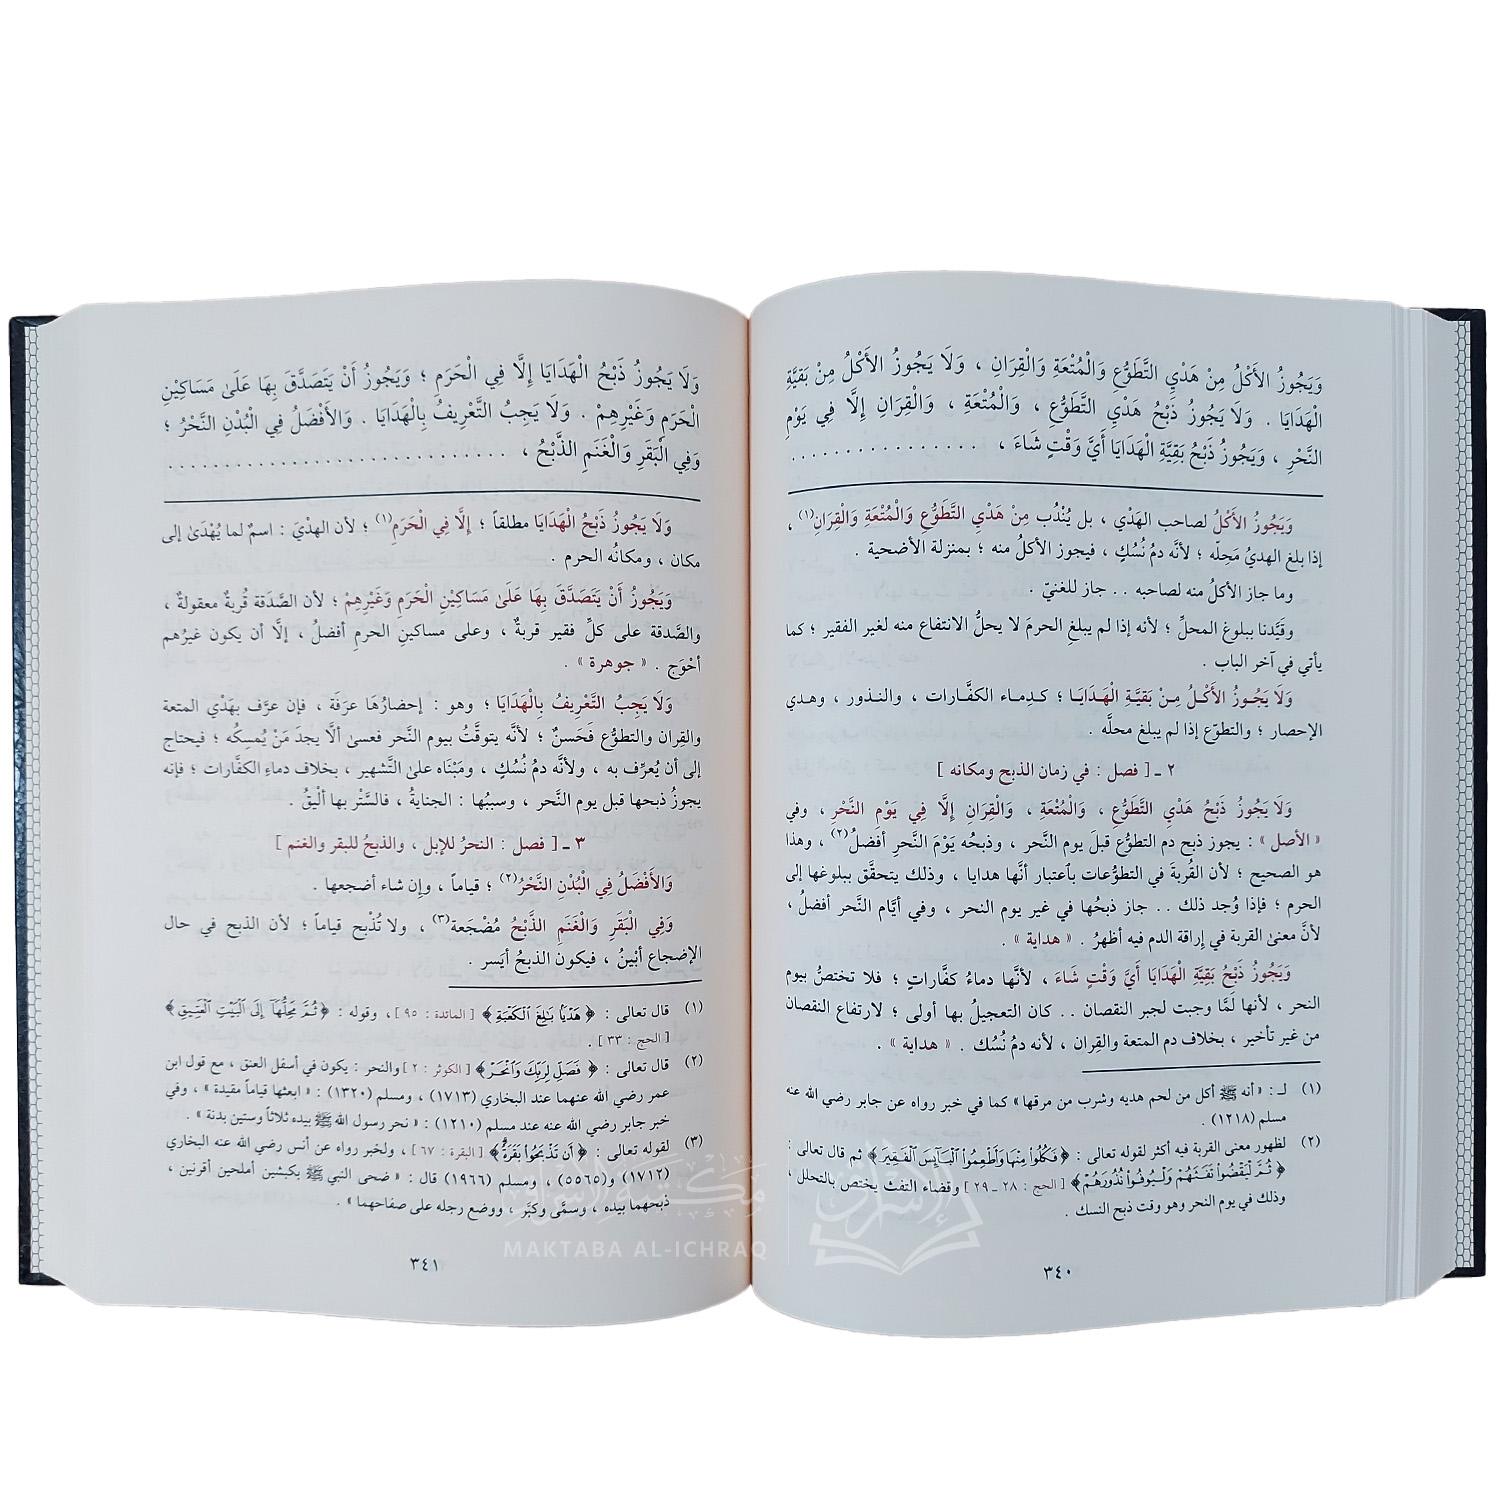 وَيَجُوزُ الأَكْلُ مِنْ هَدْيِ التَّطَوُّعِ وَالْمُتْعَةِ وَالْقِرَانِ ، وَلَا يَجُوزُ الأَكْلُ مِنْ بَقِيَّةِ
الْهَدَايَا . وَلَا يَجُوزُ ذَبْحُ هَدْيِ التَّطَوُّعِ ، وَالْمُتْعَةِ ، وَالْقِرَانِ إِلَّا فِي يَوْمِ
النَّحْرِ ، وَيَجُوزُ ذَبْحُ بَقِيَّةِ الْهَدَايَا أَيَّ وَقْتٍ شَاءَ ، . . . . . . . . . . . . . . . .
وَيَجُوزُ الأَكْلُ لصاحب الهَدْي ، بل يُنْدُب مِنْ هَدْيِ التَّطَوُّعِ وَالْمُتْعَةِ وَالْقِرَانِ(١) ،
إذا بلغ الهديُ مَحِلّه ؛ لأنَّه دمُ نُسُكٍ ، فيجوز الأكلُ منه ؛ بمنزلة الأضحية .
وما جاز الأكلُ منه لصاحبه .. جاز للغنيّ .
وقَيَّدنا ببلوغ المحلِّ ؛ لأنه إذا لم يبلغِ الحرمَ لا يحلُّ الانتفاع منه لغير الفقير ؛ كما
يأتي في آخر الباب .
وَلَا يَجُوزُ الأَكْلُ مِنْ بَقِيَّةِ الْهَدَايَا ؛ كدِماء الكفَّارات ، والنذور ، وهدي
الإحصار ؛ والتطوّع إذا لم يبلغ محلَّه .
٢ ـ [ فصل : في زمان الذبح ومكانه ]
وَلَا يَجُوزُ ذَبْحُ هَدْيِ التَّطَوُّعِ ، وَالْمُتْعَةِ ، وَالْقِرَانِ إِلَّا فِي يَوْمِ النَّحْرِ ، وفي
« الأصل » : يجوز ذبح دم التطوّع قبلَ يوم النَّحر ، وذبحُه يَوْمَ النَّحرِ أفضلُ(٢) ، وهذا
هو الصحيح ؛ لأن القُربة في التطوُّعات بٱعتبار أنَّها هدايا ، وذلك يتحقَّق ببلوغها إلى
الحرم ؛ فإذا وُجد ذلك .. جاز ذبحُها في غير يوم النحر ، وفي أيَّام النَّحر أفضلُ ،
لأنَّ معنىٰ القربة في إراقة الدم فيه أظهرُ . « هداية » .
وَيَجُوزُ ذَبْحُ بَقِيَّةِ الْهَدَايَا أَيَّ وَقْتٍ شَاءَ ، لأنَّها دماءُ كفَّاراتٍ ؛ فلا تختصُّ بيوم
النحر ، لأنها لَمَّا وجبت لجبر النقصان .. كان التعجيلُ بها أولى ؛ لارتفاع النقصان
من غير تأخير ، بخلاف دم المتعة والقِران ، لأنه دمُ نُسُك . « هداية » .
(١) لـ : « أنه ﷺ أكل من لحم هديه وشرب من مرقها » كما في خبر رواه عن جابر رضي الله عنه
مسلم (١٢١٨) .
(٢) لظهور معنى القربة فيه أكثر لقوله تعالى : ﴿ فَكُلُوا۟ مِنْهَا وَأَطْعِمُوا۟ ٱلْبَآئِسَ ٱلْفَقِيرَ ﴾ ثم قال تعالى :
﴿ ثُمَّ لْيَقْضُوا۟ تَفَثَهُمْ وَلْيُوفُوا۟ نُذُورَهُمْ ﴾ [ الحج : ٢٨ ـ ٢٩ ] وقضاء التفث يختص بالتحلل ،
وذلك في يوم النحر وهو وقت ذبح النسك .
٣٤٠
وَلَا يَجُوزُ ذَبْحُ الْهَدَايَا إِلَّا فِي الْحَرَمِ ؛ وَيَجُوزُ أَنْ يَتَصَدَّقَ بِهَا عَلَىٰ مَسَاكِيْنِ
الْحَرَمِ وَغَيْرِهِمْ . وَلَا يَجِبُ التَّعْرِيفُ بِالْهَدَايَا . وَالأَفْضَلُ فِي الْبُدْنِ النَّحْرُ ؛
وَفِي الْبَقَرِ وَالْغَنَمِ الذَّبْحُ ، . . . . . . . . . . . . . . . . . . . . . . . . . . . . .
وَلَا يَجُوزُ ذَبْحُ الْهَدَايَا مطلقاً ؛ إِلَّا فِي الْحَرَمِ(١) ؛ لأن الهدْيَ : اسمٌ لما يُهْدَىٰ إلى
مكان ، ومكانُه الحرم .
وَيَجُوزُ أَنْ يَتَصَدَّقَ بِهَا عَلَىٰ مَسَاكِيْنِ الْحَرَمِ وَغَيْرِهِمْ ؛ لأن الصَّدَقة قُربةٌ معقولةٌ ،
والصَّدقة على كلِّ فقير قربةٌ ، وعلى مساكينِ الحرمِ أفضلُ ، إلَّا أن يكون غيرُهم
أحْوَج . « جوهرة » .
وَلَا يَجِبُ التَّعْرِيفُ بِالْهَدَايَا ؛ وهو : إحضارُهَا عرَفَة ، فإن عرَّف بهَدْي المتعة
والقِران والتطوُّع فَحَسَنٌ ؛ لأنَّه يتوقَّتُ بيوم النَّحر فعسىٰ ألَّا يجدَ مَنْ يُمسِكُه ؛ فيحتاج
إلى أن يُعرِّف به ، ولأنَّه دمُ نُسُكٍ ، ومَبْنَاه علىٰ التَّشهير ، بخلاف دماءِ الكفَّارات ؛ فإنه
يجوزُ ذبحها قبل يوم النَّحر ، وسببُها : الجنايةُ ، فالسَّتْر بها أليْقُ .
٣ ـ [ فصل : النحرُ للإبل ، والذبحُ للبقر والغنم ]
وَالأَفْضَلُ فِي الْبُدْنِ النَّحْرُ(٢) ؛ قياماً ، وإن شاء أضجعها .
وَفِي الْبَقَرِ وَالْغَنَمِ الذَّبْحُ مُضْجَعة(٣) ، ولا تُذْبح قياماً ؛ لأن الذبح في حال
الإضجاع أبْيَنُ ، فيكون الذبحُ أيَسر .
(١) قال تعالى : ﴿ هَدْيًۢا بَٰلِغَ ٱلْكَعْبَةِ ﴾ [ المائدة : ٩٥ ] ، وقوله : ﴿ ثُمَّ مَحِلُّهَآ إِلَى ٱلْبَيْتِ ٱلْعَتِيقِ ﴾
[ الحج : ٣٣ ] .
(٢) قال تعالى : ﴿ فَصَلِّ لِرَبِّكَ وَٱنْحَرْ ﴾ [ الكوثر : ٢ ] والنحر : يكون في أسفل العنق ، مع قول ابن
عمر رضي الله عنهما عند البخاري (١٧١٣) ، ومسلم (١٣٢٠) : « ابعثها قياماً مقيدة » ، وفي
خبر جابر رضي الله عنه عند مسلم (١٢١٠) : « نحر رسول الله ﷺ بيده ثلاثاً وستين بدنة » .
(٣) لقوله تعالى : ﴿ أَن تَذْبَحُوا۟ بَقَرَةً ﴾ [ البقرة : ٦٧ ] ، ولخبر رواه عن أنس رضي الله عنه البخاري
(١٧١٢) و(٥٥٦٥) ، ومسلم (١٩٦٦) قال : « ضحى النبي ﷺ بكبشين أملحين أقرنين ،
ذبحهما بيده ، وسمَّى وكبَّر ، ووضع رجله على صفاحهما » .
٣٤١
مكتبة الإشراق
MAKTABA AL-ICHRAQ
الإشراق